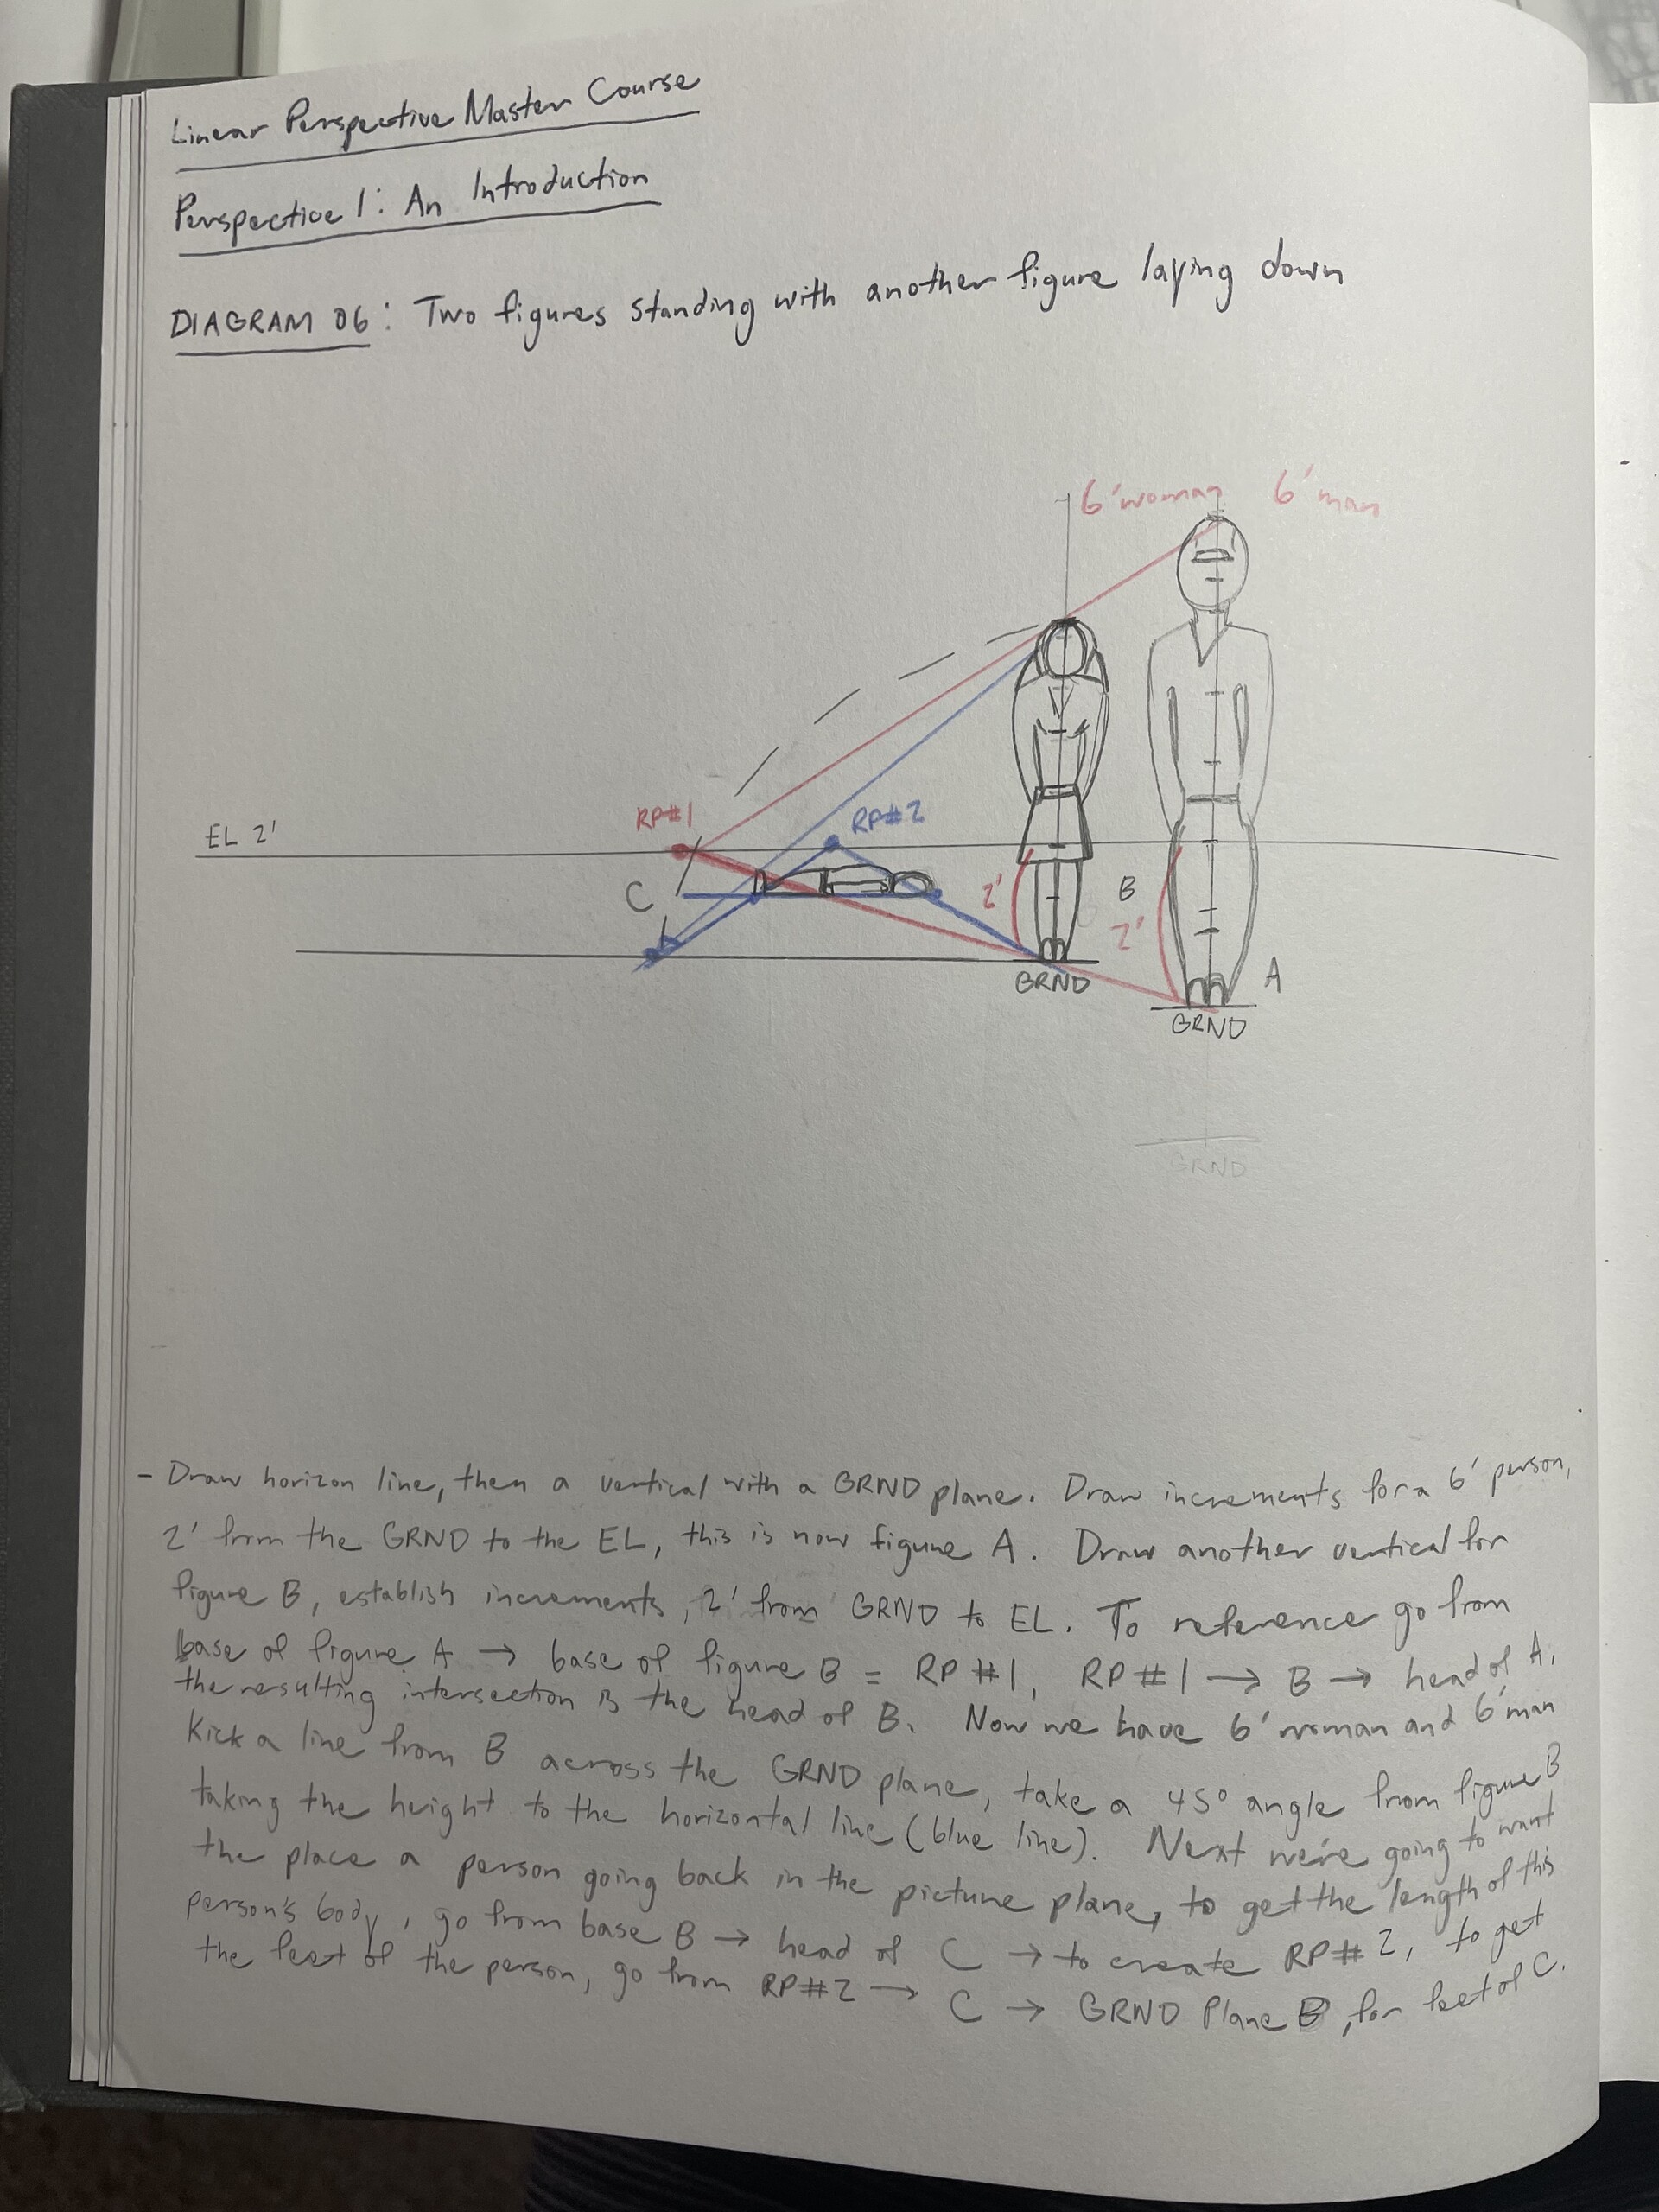 Linear Perspective Master Course
Perspective 1: An Introduction
DIAGRAM 06: Two figures standing with another figure laying down
6' woman 6' man
RP#1
RP#2
EL 2'
C
2'
B
2'
A
GRND
GRND
GRND
- Draw horizon line, then a vertical with a GRND plane. Draw increments for a 6' person,
2' from the GRND to the EL, this is now figure A. Draw another vertical for
figure B, establish increments, 2' from GRND to EL. To reference go from
base of figure A → base of figure B = RP #1, RP #1 → B → head of A,
the resulting intersection is the head of B. Now we have 6' woman and 6' man
Kick a line from B across the GRND plane, take a 45° angle from figure B
taking the height to the horizontal line (blue line). Next we're going to want
the place a person going back in the picture plane, to get the length of this
person's body, go from base B → head of C → to create RP# 2, to get
the feet of the person, go from RP#2 → C → GRND Plane B, for feet of C.